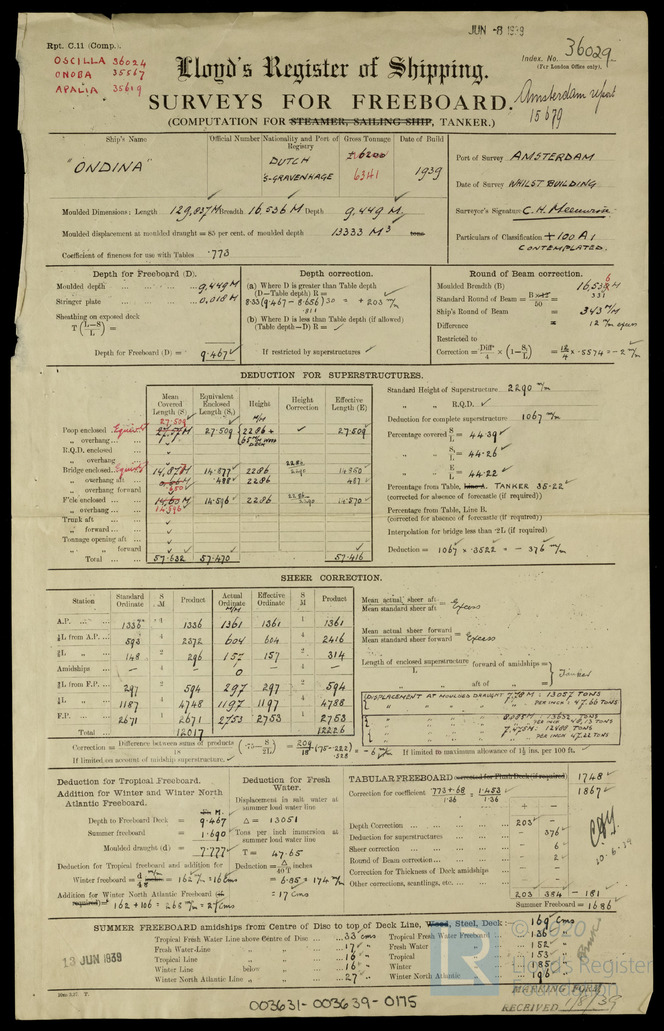 JUN -8 1939
Rpt. C.11 (Comp.).
OSCILLA 36024
ONOBA 35567
APALIA 35619
Index. No. 36029
(For London Office only).
Lloyd's Register of Shipping.
SURVEYS FOR FREEBOARD.
Amsterdam report
15679
(COMPUTATION FOR STEAMER, SAILING SHIP, TANKER.)
Ship's Name Official Number Nationality and Port of Registry Gross Tonnage Date of Build
"ONDINA" DUTCH 's-GRAVENHAGE ± 6200 6341 1939
Port of Survey AMSTERDAM
Date of Survey WHILST BUILDING
Surveyor's Signature C. H. Meeuwsen
Particulars of Classification +100 A1 CONTEMPLATED.
Moulded Dimensions: Length 129,837 M Breadth 16,536 M Depth 9,449 M
Moulded displacement at moulded draught = 85 per cent. of moulded depth 13333 M³ tons
Coefficient of fineness for use with Tables .773
Depth for Freeboard (D).
Moulded depth ... 9,449 M
Stringer plate ... 0,018 M
Sheathing on exposed deck
T (L-S/L) =
Depth for Freeboard (D) = 9.467
Depth correction.
(a) Where D is greater than Table depth
(D—Table depth) R =
8.33 (9.467 - 8.656) 30 = + 203 m/m
.811
(b) Where D is less than Table depth (if allowed)
(Table depth—D) R =
If restricted by superstructures
Round of Beam correction.
Moulded Breadth (B) 16,536 M
Standard Round of Beam = B×12/50 = 331
Ship's Round of Beam = 343 m/m
Difference = 12 m/m excess
Restricted to
Correction = Diff/4 × (1 - S₁/L) = 12/4 × .5574 = - 2 m/m
DEDUCTION FOR SUPERSTRUCTURES.
Mean Covered Length (S) Equivalent Enclosed Length (S₁) Height Height Correction Effective Length (E)
Poop enclosed Equiv't 27.509 27.509 2286 + 27.509
„ overhang
R.Q.D. enclosed
„ overhang
Bridge enclosed Equiv't 14.877 14.877 2286 2286/2290 14.850
„ overhang aft .488 2286 487
„ overhang forward .650
F'cle enclosed 14,63 M 14.596 2286 2286/2290 14.570
„ overhang 14.596
Trunk aft
„ forward
Tonnage opening aft
„ „ forward
Total 57.632 57.470 57.416
Standard Height of Superstructure 2290 m/m
„ „ R.Q.D.
Deduction for complete superstructure 1067 m/m
Percentage covered S/L = 44.39
„ „ S₁/L = 44.26
„ „ E/L = 44.22
Percentage from Table, Line A. TANKER 35.22
(corrected for absence of forecastle (if required))
Percentage from Table, Line B.
(corrected for absence of forecastle (if required))
Interpolation for bridge less than .2L (if required)
Deduction = 1067 × .3522 = - 376 m/m
SHEER CORRECTION.
Station Standard Ordinate S M Product Actual Ordinate Effective Ordinate S M Product
A.P. 1336 1 1336 1361 1361 1 1361
⅙L from A.P. 593 4 2372 604 604 4 2416
⅓L „ 148 2 296 157 157 2 314
Amidships - 4 - 0 - 4 -
⅓L from F.P. 297 2 594 297 297 2 594
⅙L „ 1187 4 4748 1197 1197 4 4788
F.P. 2671 1 2671 2753 2753 1 2753
Total 12017 12226
Mean actual sheer aft / Mean standard sheer aft = Excess
Mean actual sheer forward / Mean standard sheer forward = Excess
Length of enclosed superstructure forward of amidships =
L „ aft of „ = Tanker
DISPLACEMENT AT MOULDED DRAUGHT 7.78 M : 13057 TONS
„ „ „ PER INCH : 47.66 TONS
8.032 M : 13632 TONS
PER INCH : 48.13 TONS
7.475 M : 12488 TONS
PER INCH 47.22 TONS
Correction = Difference between sums of products / 18 (.75 - S/2L) = 209/18 (.75 - .222) .528 = - 6 m/m
If limited on account of midship superstructure.
If limited to maximum allowance of 1½ ins. per 100 ft.
Deduction for Tropical Freeboard.
Addition for Winter and Winter North Atlantic Freeboard.
M.
Depth to Freeboard Deck = 9.467
Summer freeboard = 1.690
Moulded draught (d) = 7.777
Deduction for Tropical freeboard and addition for
Winter freeboard = d/48 m/m = 162 m/m = 16 cms
Addition for Winter North Atlantic Freeboard (if required) =
162 + 106 = 268 m/m = 27 cms
Deduction for Fresh Water.
Displacement in salt water at summer load water line
Δ = 13051
Tons per inch immersion at summer load water line
T = 47.65
Deduction = Δ/40T inches
= 6.85 = 174 m/m
= 17 cms
TABULAR FREEBOARD corrected for Flush Deck (if required) 1748
Correction for coefficient .773+.68/1.36 = 1.453/1.36 1867
+ -
Depth Correction 203 -
Deduction for superstructures - 376
Sheer correction - 6
Round of Beam correction - 2
Correction for Thickness of Deck amidships
Other corrections, scantlings, etc.
203 384 - 181
Summer Freeboard = 1686
10-6-39
SUMMER FREEBOARD amidships from Centre of Disc to top of Deck Line, Wood, Steel, Deck :— 169 cms
Tropical Fresh Water Line above Centre of Disc 33 cms Tropical Fresh Water Freeboard 136 „
Fresh Water Line „ „ 17 „ Fresh Water „ 152 „
Tropical Line „ „ 16 „ Tropical „ 153 „
Winter Line below „ 16 „ Winter „ 185 „
Winter North Atlantic Line „ „ 27 „ Winter North Atlantic „ 196 „
13 JUN 1939
MARKING FORM
RECEIVED 1/8/39
003631-003639-0175
© 2020
LR
Lloyd's Register
Foundation